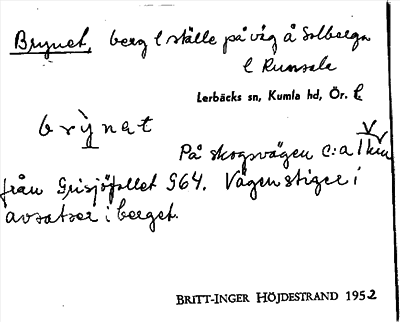 Brynet, berg l ställe på väg å Solberga
l Rumsala
Lerbäcks sn, Kumla hd, Ör. l
brynat
På skogsvägen c:a 1 km
från Grisjöfallet 964. Vägen stiger i
avsatser i berget.
BRITT-INGER HÖJDESTRAND 1952